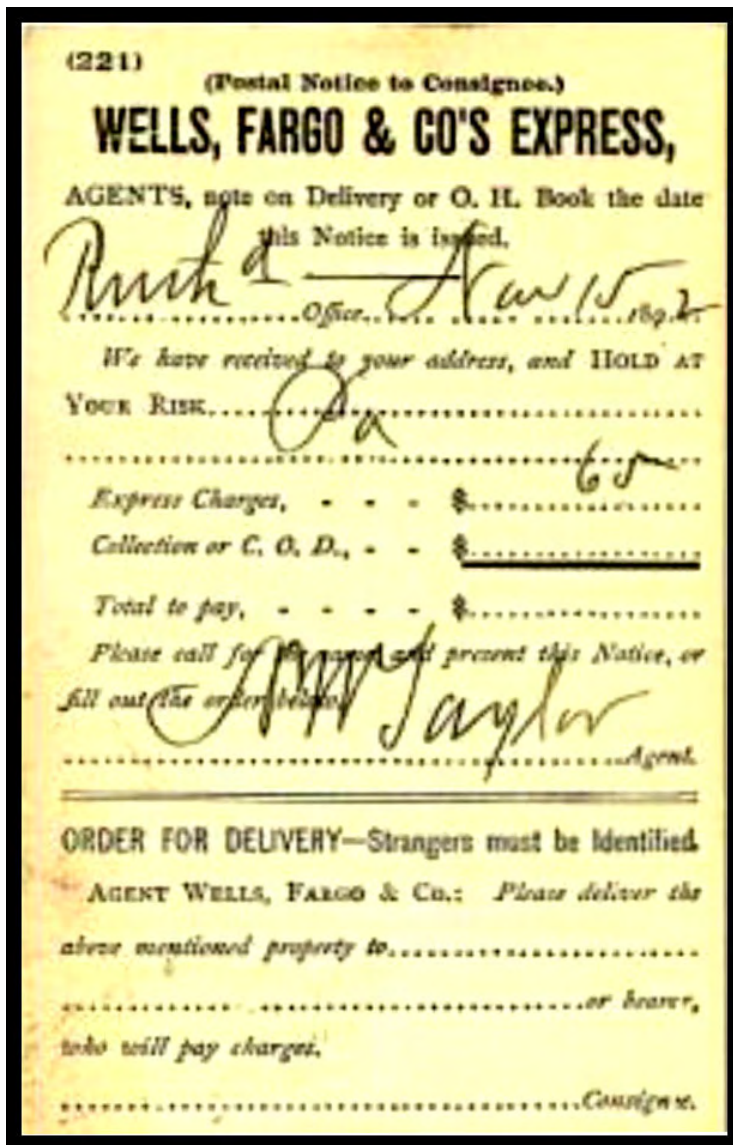 (221)
(Postal Notice to Consignee.)
WELLS, FARGO & CO'S EXPRESS,
AGENTS, note on Delivery or O. H. Book the date
this Notice is issued.
Office Nov 15 1892
We have received to your address, and HOLD AT
YOUR RISK
Pa
65
Express Charges, - - - $
Collection or C. O. D., - - $
Total to pay, - - - - $
Please call for the same and present this Notice, or
fill out the order below.
Taylor
Agent.
ORDER FOR DELIVERY—Strangers must be Identified.
AGENT WELLS, FARGO & CO.: Please deliver the
above mentioned property to
or bearer,
who will pay charges.
Consignee.